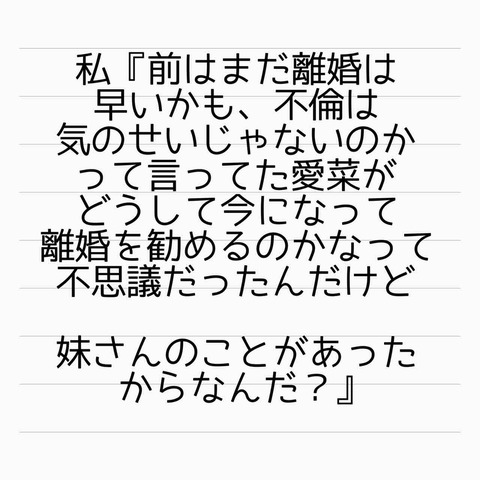 私『前はまだ離婚は
早いかも、不倫は
気のせいじゃないのか
って言ってた愛菜が
どうして今になって
離婚を勧めるのかなって
不思議だったんだけど
妹さんのことがあった
からなんだ？』